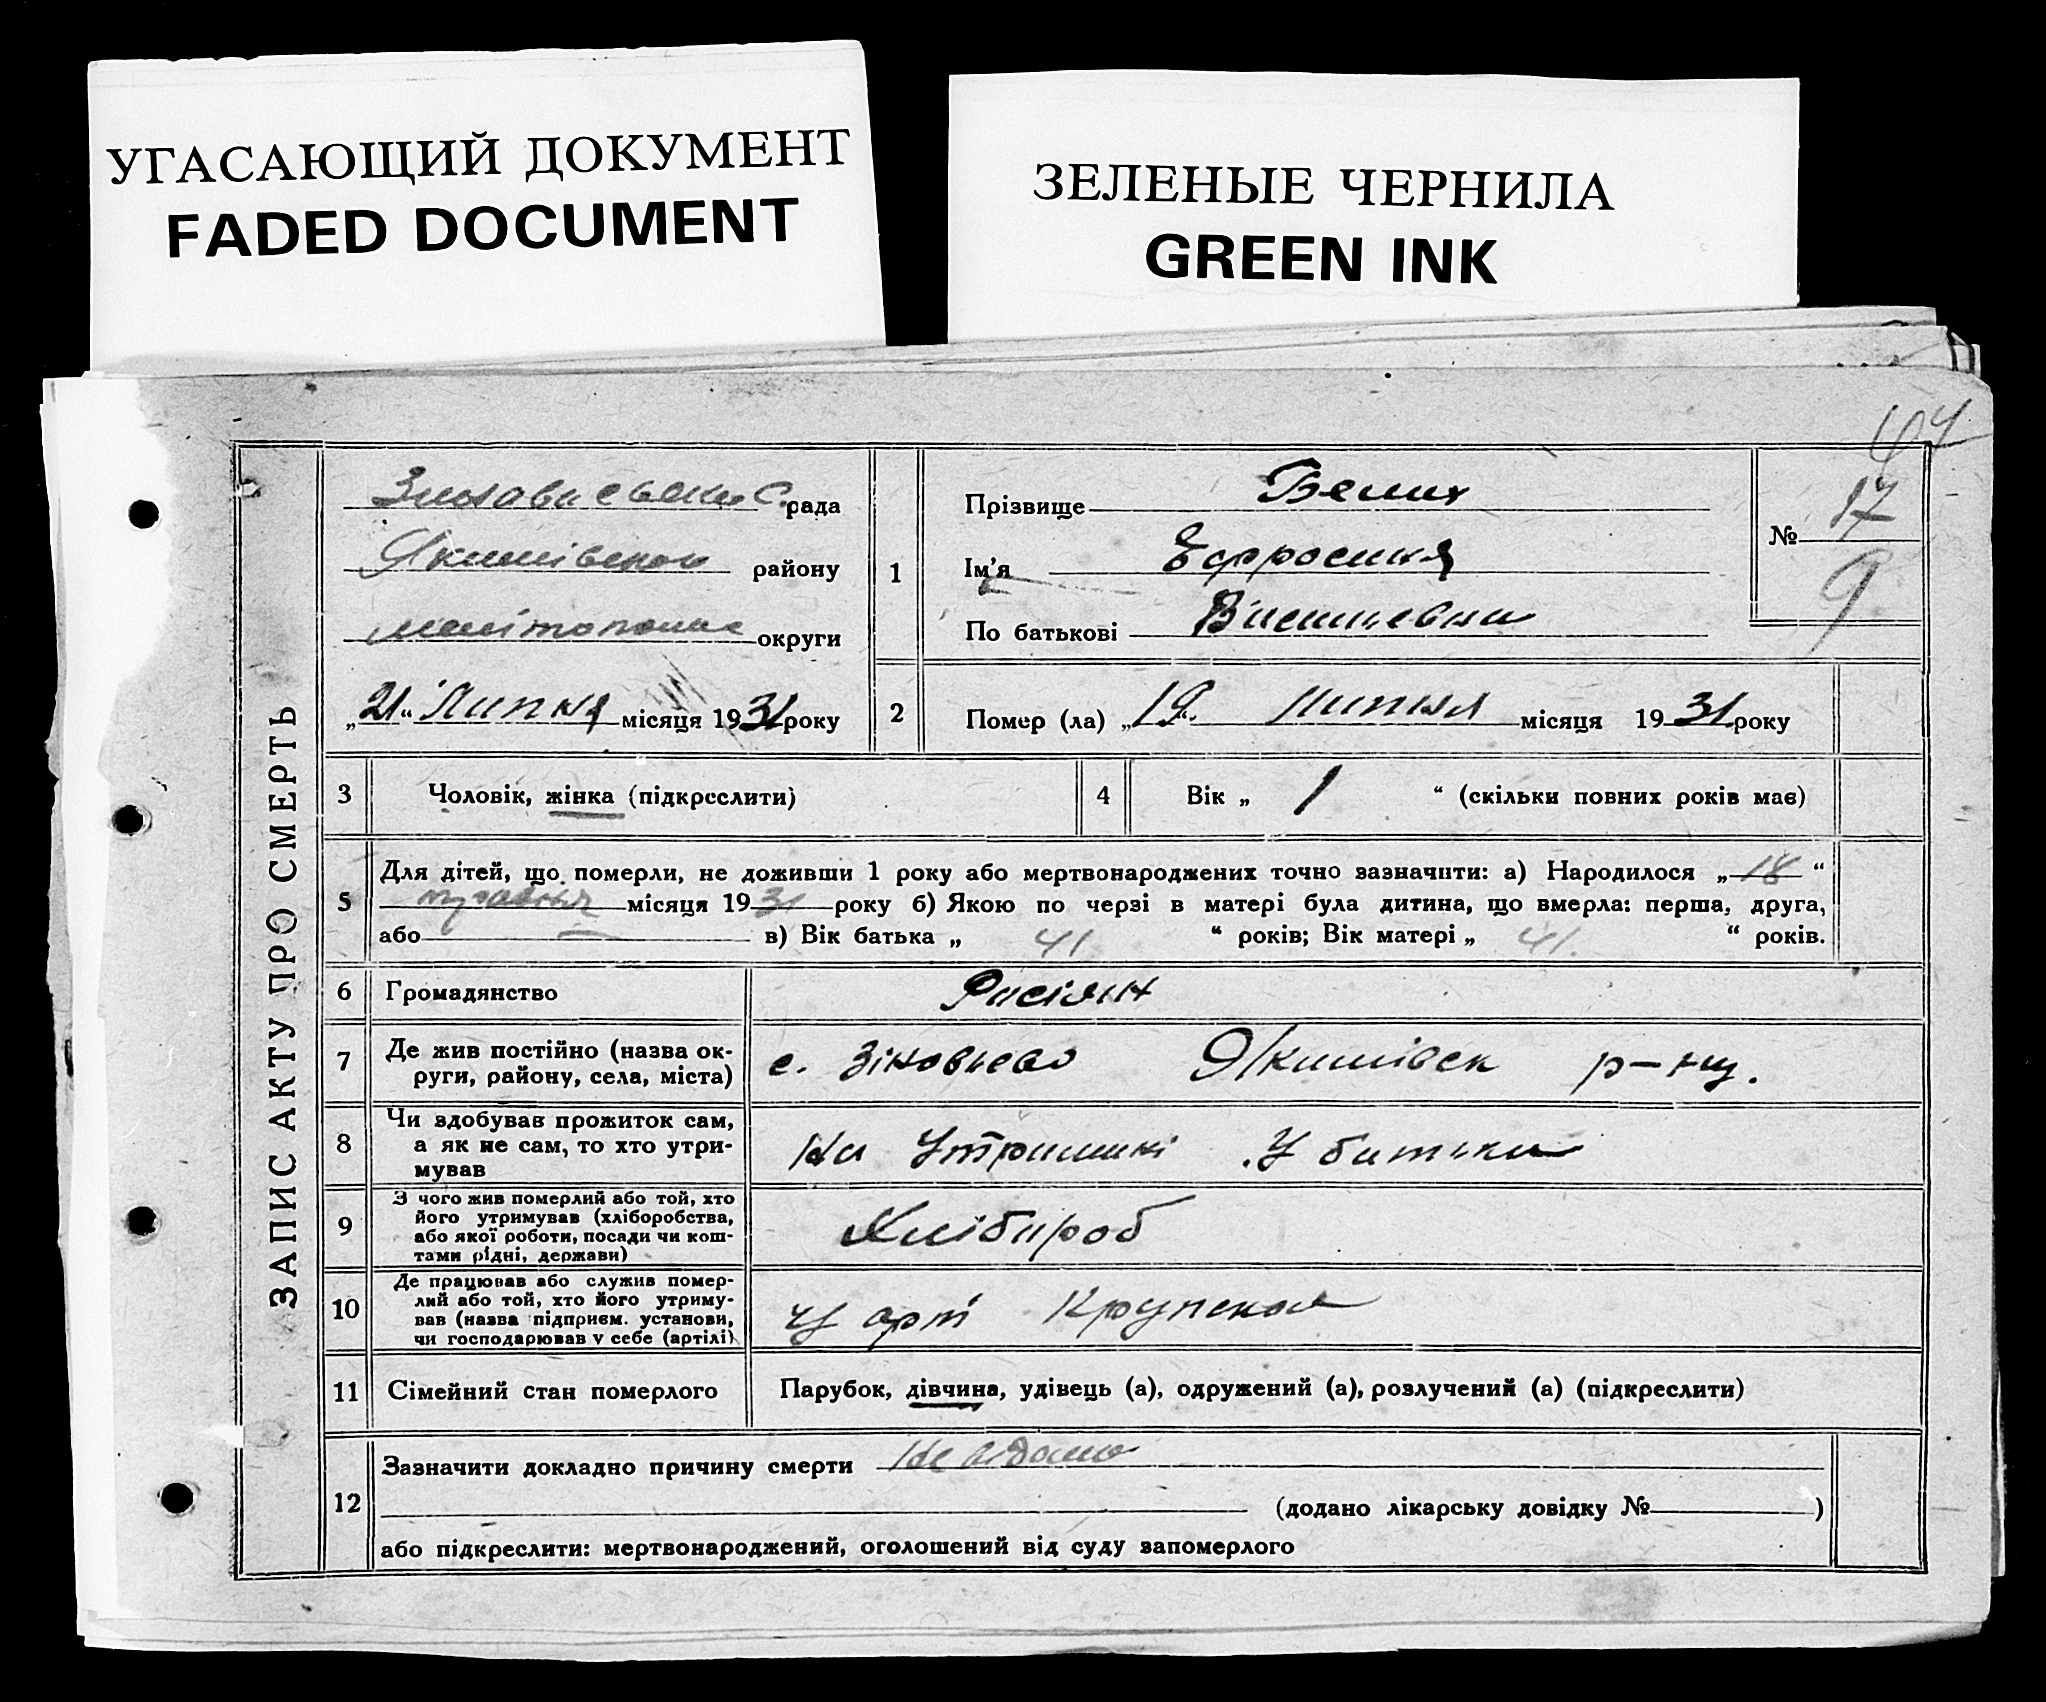 УГАСАЮЩИЙ ДОКУМЕНТ
FADED DOCUMENT
ЗЕЛЕНЫЕ ЧЕРНИЛА
GREEN INK
ЗАПИС АКТУ ПРО СМЕРТЬ
с. рада
Якимівського району
округи
„21“ Липня місяця 1931 року
1
Прізвище Белих
Ім'я Ефросиня
По батькові
№ 17
9
2
Помер (ла) „19“ липня місяця 1931 року
3
Чоловік, жінка (підкреслити)
4
Вік „ 1 “ (скільки повних років має)
5
Для дітей, що померли, не доживши 1 року або мертвонароджених точно зазначити: а) Народилося „18“
травня місяця 1931 року б) Якою по черзі в матері була дитина, що вмерла: перша, друга,
або в) Вік батька „ 41 “ років; Вік матері „ 41. “ років.
6
Громадянство
Росіян
7
Де жив постійно (назва ок-
руги, району, села, міста)
с. Зіновьєво Якимівськ р-ну.
8
Чи здобував прожиток сам,
а як не сам, то хто утри-
мував
На Утримані У батька
9
З чого жив померлий або той, хто
його утримував (хліборобства,
або якої роботи, посади чи кош-
тами рідні, держави)
Хлібороб
10
Де працював або служив помер-
лий або той, хто його утриму-
вав (назва підприєм. установи,
чи господарював у себе (артілі)
У арт Крупской
11
Сімейний стан померлого
Парубок, дівчина, удівець (а), одружений (а), розлучений (а) (підкреслити)
12
Зазначити докладно причину смерти Не відомо
(додано лікарську довідку № )
або підкреслити: мертвонароджений, оголошений від суду запомерлого